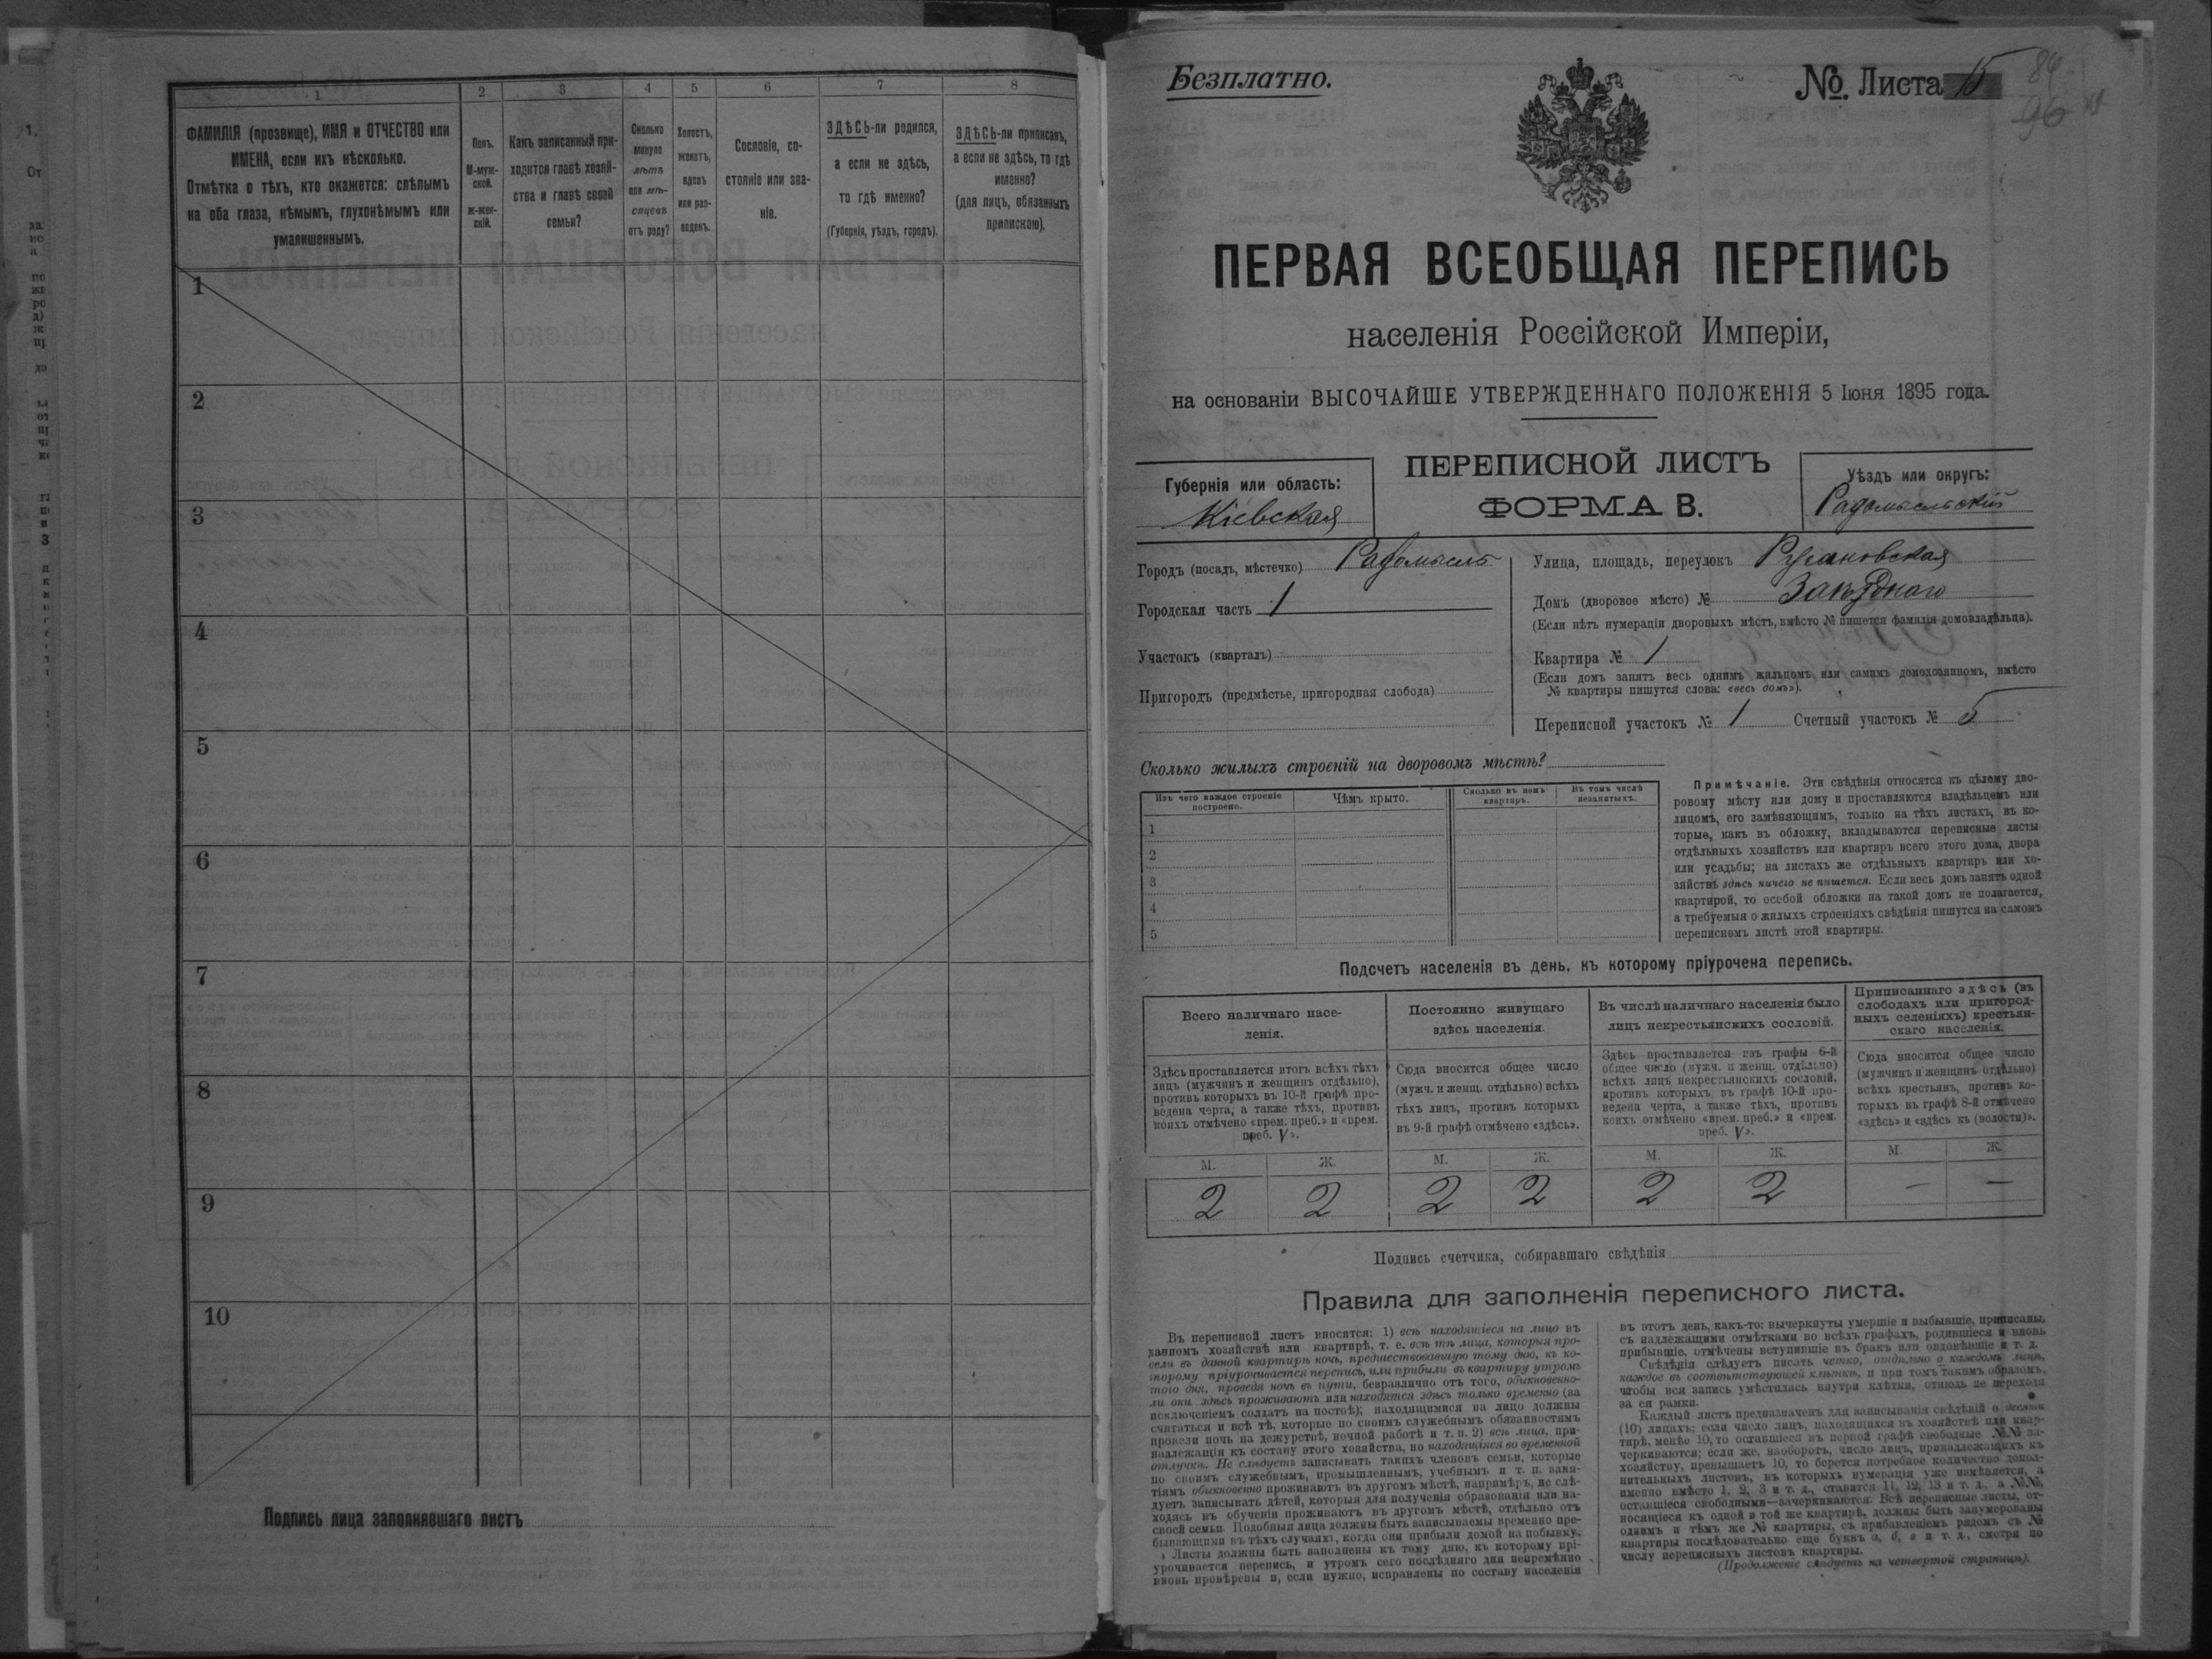 1
2
3
4
5
6
7
8
ФАМИЛІЯ (прозвище), ИМЯ и ОТЧЕСТВО или
ИМЕНА, если ихъ нѣсколько.
Отмѣтка о тѣхъ, кто окажется: слѣпымъ
на оба глаза, нѣмымъ, глухонѣмымъ или
умалишеннымъ.
Полъ.
М-муж-
ской.
Ж-жен-
скій.
Какъ записанный при-
ходится главѣ хозяй-
ства и главѣ своей
семьи?
Сколько
минуло
лѣтъ
или мѣ-
сяцевъ
отъ роду?
Холостъ,
женатъ,
вдовъ
или раз-
веденъ.
Сословіе, со-
стояніе или зва-
ніе.
ЗДѢСЬ-ли родился,
а если не здѣсь,
то гдѣ именно?
(Губернія, уѣздъ, городъ).
ЗДѢСЬ-ли приписанъ,
а если не здѣсь, то гдѣ
именно?
(для лицъ, обязанныхъ
припискою).
1
2
3
4
5
6
7
8
9
10
Подпись лица заполнявшаго листъ
Безплатно.
№. Листа 15
84
96
ПЕРВАЯ ВСЕОБЩАЯ ПЕРЕПИСЬ
населенія Россійской Имперіи,
на основаніи ВЫСОЧАЙШЕ УТВЕРЖДЕННАГО ПОЛОЖЕНІЯ 5 Іюня 1895 года.
Губернія или область:
Кіевская
ПЕРЕПИСНОЙ ЛИСТЪ
ФОРМА В.
Уѣздъ или округъ:
Радомысльскій
Городъ (посадъ, мѣстечко) Радомысль
Городская часть 1
Участокъ (кварталъ)
Пригородъ (предмѣстье, пригородная слобода)
Улица, площадь, переулокъ
Домъ (дворовое мѣсто) №
(Если нѣтъ нумераціи дворовыхъ мѣстъ, вмѣсто № пишется фамилія домовладѣльца).
Квартира № 1
(Если домъ занятъ весь однимъ жильцомъ или самимъ домохозяиномъ, вмѣсто
№ квартиры пишутся слова: «весь домъ»).
Переписной участокъ № 1 Счетный участокъ № 5
Сколько жилыхъ строеній на дворовомъ мѣстѣ?
Изъ чего каждое строеніе
построено.
Чѣмъ крыто.
Сколько въ немъ
квартиръ.
Въ томъ числѣ
незанятыхъ.
1
2
3
4
5
Примѣчаніе. Эти свѣдѣнія относятся къ цѣлому дво-
ровому мѣсту или дому и проставляются владѣльцемъ или
лицомъ, его замѣняющимъ, только на тѣхъ листахъ, въ ко-
торые, какъ въ обложку, вкладываются переписные листы
отдѣльныхъ хозяйствъ или квартиръ всего этого дома, двора
или усадьбы; на листахъ же отдѣльныхъ квартиръ или хо-
зяйствъ здѣсь ничего не пишется. Если весь домъ занятъ одной
квартирой, то особой обложки на такой домъ не полагается,
а требуемыя о жилыхъ строеніяхъ свѣдѣнія пишутся на самомъ
переписномъ листѣ этой квартиры.
Подсчетъ населенія въ день, къ которому пріурочена перепись.
Всего наличнаго насе-
ленія.
Постоянно живущаго
здѣсь населенія.
Въ числѣ наличнаго населенія было
лицъ некрестьянскихъ сословій.
Приписаннаго здѣсь (въ
слободахъ или пригород-
ныхъ селеніяхъ) крестьян-
скаго населенія.
Здѣсь проставляется итогъ всѣхъ тѣхъ
лицъ (мужчинъ и женщинъ отдѣльно),
противъ которыхъ въ 10-й графѣ про-
ведена черта, а также тѣхъ, противъ
коихъ отмѣчено «врем. преб.» и «врем.
преб. V».
Сюда вносится общее число
(мужч. и женщ. отдѣльно) всѣхъ
тѣхъ лицъ, противъ которыхъ
въ 9-й графѣ отмѣчено «здѣсь».
Здѣсь проставляется изъ графы 6-й
общее число (мужч. и женщ. отдѣльно)
всѣхъ лицъ некрестьянскихъ сословій,
противъ которыхъ въ графѣ 10-й про-
ведена черта, а также тѣхъ, противъ
коихъ отмѣчено «врем. преб.» и «врем.
преб. V».
Сюда вносится общее число
(мужчинъ и женщинъ отдѣльно)
всѣхъ крестьянъ, противъ ко-
торыхъ въ графѣ 8-й отмѣчено
«здѣсь» и «здѣсь къ (волости)».
М. Ж. М. Ж. М. Ж. М. Ж.
2 2 2 2 2 2 — —
Подпись счетчика, собиравшаго свѣдѣнія
Правила для заполненія переписного листа.
Въ переписной листъ вносятся: 1) всѣ находящіеся на лицо въ
данномъ хозяйствѣ или квартирѣ, т. е. всѣ тѣ лица, которыя про-
вели въ данной квартирѣ ночь, предшествовавшую тому дню, къ ко-
торому пріурочивается перепись, или прибыли въ квартиру утромъ
того дня, проведя ночь въ пути, безразлично отъ того, обыкновенно-
ли они здѣсь проживаютъ или находятся здѣсь только временно (за
исключеніемъ солдатъ на постоѣ); находящимися на лицо должны
считаться и всѣ тѣ, которые по своимъ служебнымъ обязанностямъ
провели ночь на дежурствѣ, ночной работѣ и т. п. 2) всѣ лица, при-
надлежащія къ составу этого хозяйства, но находящіяся во временной
отлучкѣ. Не слѣдуетъ записывать такихъ членовъ семьи, которые
по своимъ служебнымъ, промышленнымъ, учебнымъ и т. п. заня-
тіямъ обыкновенно проживаютъ въ другомъ мѣстѣ, напримѣръ, не слѣ-
дуетъ записывать дѣтей, которыя для полученія образованія или на-
ходясь въ обученіи проживаютъ въ другомъ мѣстѣ, отдѣльно отъ
своей семьи. Подобныя лица должны быть записываемы временно пре-
бывающими въ тѣхъ случаяхъ, когда они прибыли домой на побывку.
Листы должны быть заполнены къ тому дню, къ которому прі-
урочивается перепись, и утромъ сего послѣдняго дня непремѣнно
вновь провѣрены и, если нужно, исправлены по составу населенія
въ этотъ день, какъ-то: вычеркнуты умершіе и выбывшіе, приписаны,
съ надлежащими отмѣтками во всѣхъ графахъ, родившіеся и вновь
прибывшіе, отмѣчены вступившіе въ бракъ или овдовѣвшіе и т. д.
Свѣдѣнія слѣдуетъ писать четко, отдѣльно о каждомъ лицѣ,
каждое въ соотвѣтствующей клѣткѣ, и при томъ такимъ образомъ,
чтобы вся запись умѣстилась внутри клѣтки, отнюдь не переходя
за ея рамки.
Каждый листъ предназначенъ для записыванія свѣдѣній о десяти
(10) лицахъ; если число лицъ, находящихся въ хозяйствѣ или квар-
тирѣ, менѣе 10, то оставшіеся въ первой графѣ свободные №№ за-
черкиваются; если же, наоборотъ, число лицъ, принадлежащихъ къ
хозяйству, превышаетъ 10, то берется потребное количество допол-
нительныхъ листовъ, въ которыхъ нумерація уже измѣняется, а
именно вмѣсто 1, 2, 3 и т. д., ставится 11, 12, 13 и т. д., а №№,
оставшіеся свободными—зачеркиваются. Всѣ переписные листы, от-
носящіеся къ одной и той же квартирѣ, должны быть занумерованы
однимъ и тѣмъ же № квартиры, съ прибавленіемъ рядомъ съ №
квартиры послѣдовательно еще буквъ а, б, в и т. д., смотря по
числу переписныхъ листовъ квартиры.
(Продолженіе слѣдуетъ на четвертой страницѣ).